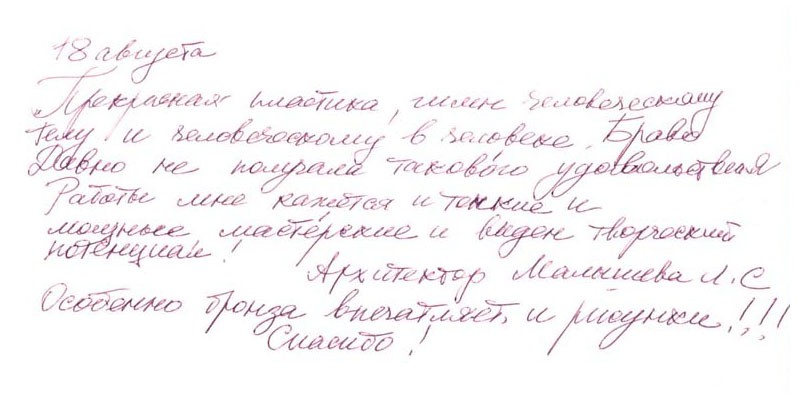 18 августа
„Прекрасная пластика, гимн человеческому
телу и человеческому в человеке. Браво
Давно не получали такового удовольствия
Работы мне кажется и тонкие и
мощные мастерские и виден творческий
потенциал!
Архитектор Малышева Л. С
Особенно бронза впечатляет и рисунки!!!
Спасибо!